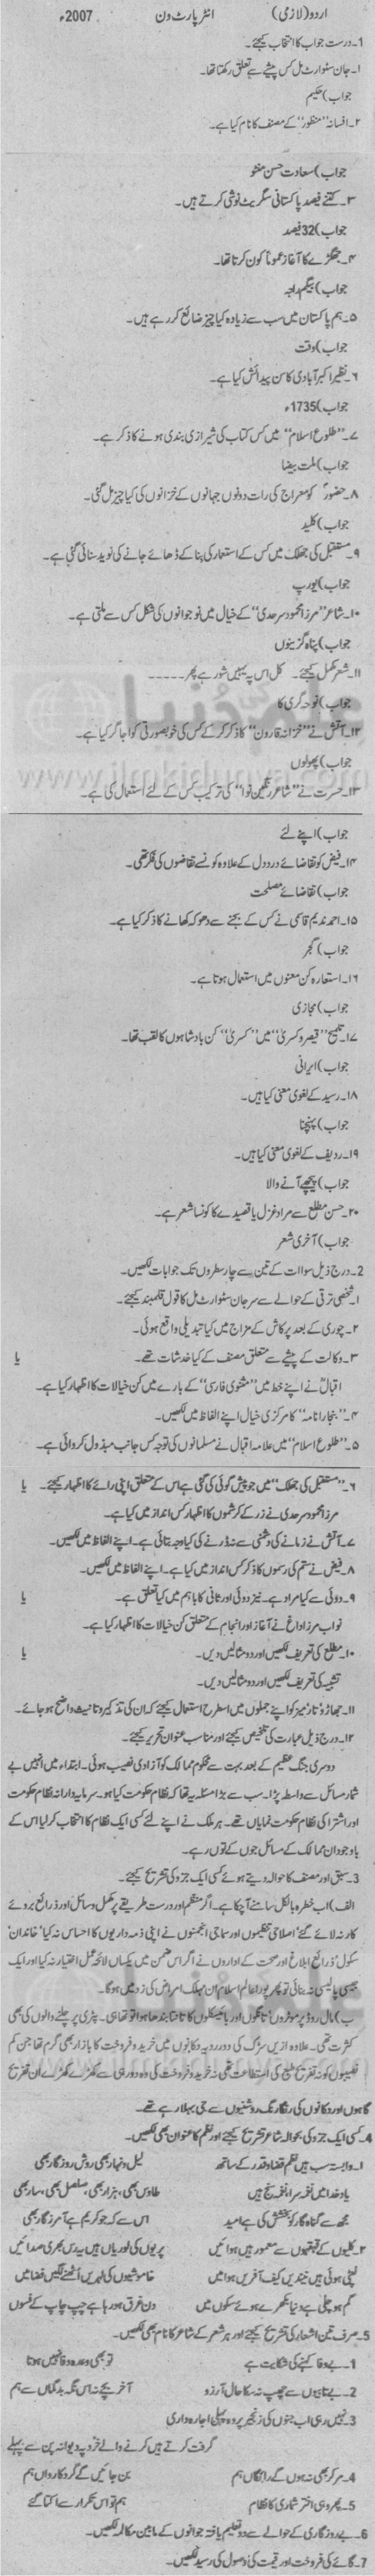 اردو (لازمی) انٹر پارٹ ون 2007ء
1۔ درست جواب کا انتخاب کیجئے۔
۱۔ جان سٹوارٹ مل کس پیشے سے تعلق رکھتا تھا۔
جواب) حکیم
۲۔ افسانہ "منظور" کے مصنف کا نام کیا ہے۔
جواب) سعادت حسن منٹو
۳۔ کتنے فیصد پاکستانی سگریٹ نوشی کرتے ہیں۔
جواب) 32 فیصد
۴۔ جھگڑے کا آغاز عموماً کون کرتا تھا۔
جواب) بیگم راجہ
۵۔ ہم پاکستان میں سب سے زیادہ کیا چیز ضائع کر رہے ہیں۔
جواب) وقت
۶۔ نظیر اکبر آبادی کا سن پیدائش کیا ہے۔
جواب) 1735ء
۷۔ "طلوع اسلام" میں کس کتاب کی شیرازہ بندی ہونے کا ذکر ہے۔
جواب) ملت بیضا
۸۔ حضورؐ کو معراج کی رات دونوں جہانوں کے خزانوں کی کیا چیز مل گئی۔
جواب) کلید
۹۔ مستقبل کی جھلک میں کس کے استعمار کی بنا کے ڈھائے جانے کی نوید سنائی گئی ہے۔
جواب) یورپ
۱۰۔ شاعر "مرزا محمود سرحدی" کے خیال میں نوجوانوں کی شکل کس سے ملتی ہے۔
جواب) پناہ گزینوں
۱۱۔ شعر مکمل کیجئے۔ کل اس پہ یہیں شور ہے پھر -----
جواب) نوحہ گری کا
۱۲۔ آتش نے "خزانہ قارون" کا ذکر کر کے کس کی خوبصورتی کو اجاگر کیا ہے۔
جواب) پھولوں
۱۳۔ حسرت نے "شاعر رنگین نوا" کی ترکیب کس کے لئے استعمال کی ہے۔
جواب) اپنے لئے
۱۴۔ فیض کو تقاضائے درد دل کے علاوہ کونسے تقاضوں کی فکر تھی۔
جواب) تقاضائے مصلحت
۱۵۔ احمد ندیم قاسمی نے کس کے بجنے سے دھوکہ کھانے کا ذکر کیا ہے۔
جواب) گجر
۱۶۔ استعارہ کن معنوں میں استعمال ہوتا ہے۔
جواب) مجازی
۱۷۔ تلمیح "قیصر و کسریٰ" میں "کسریٰ" کن بادشاہوں کا لقب تھا۔
جواب) ایرانی
۱۸۔ رسید کے لغوی معنی کیا ہیں۔
جواب) پہنچنا
۱۹۔ ردیف کے لغوی معنی کیا ہیں۔
جواب) پیچھے آنے والا
۲۰۔ حسن مطلع سے مراد غزل یا قصیدے کا کونسا شعر ہے۔
جواب) آخری شعر
2۔ درج ذیل سوالات کے تین سے چار سطروں تک جوابات لکھیں۔
۱۔ شخصی ترقی کے حوالے سے سر جان سٹوارٹ مل کا قول قلمبند کیجئے۔
۲۔ چوری کے بعد پرکاش کے مزاج میں کیا تبدیلی واقع ہوئی۔
۳۔ وکالت کے پیشے سے متعلق مصنف کے کیا خدشات تھے۔ یا
اقبالؒ نے اپنے خط میں "مثنوی فارسی" کے بارے میں کن خیالات کا اظہار کیا ہے۔
۴۔ "بنجارا نامہ" کا مرکزی خیال اپنے الفاظ میں لکھیں۔
۵۔ "طلوع اسلام" میں علامہ اقبال نے مسلمانوں کی توجہ کس جانب مبذول کروائی ہے۔
۶۔ "مستقبل کی جھلک" میں جو پیش گوئی کی گئی ہے اس کے متعلق اپنی رائے کا اظہار کیجئے۔ یا
مرزا محمود سرحدی نے زر کے کرشموں کا اظہار کس انداز میں کیا ہے۔
۷۔ آتش نے زمانے کی دشمنی سے نہ ڈرنے کی کیا وجہ بتائی ہے۔ اپنے الفاظ میں لکھیں۔
۸۔ فیض نے ستم کی رسموں کا ذکر کس انداز میں کیا ہے۔ اپنے الفاظ میں لکھیں۔
۹۔ دوئی سے کیا مراد ہے۔ نیز دوئی اور ثانی کا باہم میں کیا تعلق ہے۔ یا
نواب مرزا داغ نے آغاز اور انجام کے متعلق کن خیالات کا اظہار کیا ہے۔
۱۰۔ مطلع کی تعریف لکھیں اور دو مثالیں دیں۔ یا
تشبیہ کی تعریف لکھیں اور دو مثالیں دیں۔
۱۱۔ جھاڑو، تار، میز کو اپنے جملوں میں اسطرح استعمال کیجئے کہ ان کی تذکیر و تانیث واضح ہو جائے۔
۱۲۔ درج ذیل عبارت کی تلخیص کیجئے اور مناسب عنوان تحریر کیجئے۔
دوسری جنگ عظیم کے بعد بہت سے محکوم ممالک کو آزادی نصیب ہوئی۔ ابتداء میں انہیں بے
شمار مسائل سے واسطہ پڑا۔ سب سے بڑا مسئلہ یہ تھا کہ نظام حکومت کیا ہو۔ سرمایہ دارانہ نظام حکومت
اور اشتراکی نظام حکومت نمایاں تھے۔ ہر ملک نے اپنے لئے کسی ایک نظام کا انتخاب کر لیا اس کے
باوجود ان ممالک کے مسائل جوں کے توں رہے۔
3۔ سبق اور مصنف کا حوالہ دیتے ہوئے کسی ایک جزو کی تشریح کیجئے۔
الف) اب خطرہ بالکل سامنے آ چکا ہے۔ اگر منظم اور درست طریقے پر مکمل وسائل اور ذرائع بروئے
کار نہ لائے گئے، اصلاحی تنظیموں اور سماجی انجمنوں نے اپنی ذمہ داریوں کا احساس نہ کیا، خاندان،
سکول، ذرائع ابلاغ اور صحت کے اداروں نے اگر اس ضمن میں یکساں لائحہ عمل اختیار نہ کیا اور ایک
جیسی پالیسی نہ بنائی تو پھر پورا عالم اسلام ان مہلک امراض کی زد میں ہوگا۔
ب) مال روڈ پر موٹروں، تانگوں اور بائیسکلوں کا تانتا بندھا ہوا تو تھا ہی۔ پٹڑی پر چلنے والوں کی بھی
کثرت تھی۔ علاوہ ازیں سڑک کی دو رویہ دکانوں میں خرید و فروخت کا بازار بھی گرم تھا جن کم
نصیبوں کو نہ تفریح طبع کی استطاعت تھی نہ خرید و فروخت کی وہ دور ہی سے کھڑے کھڑے ان تفریح
گاہوں اور دکانوں کی رنگا رنگ روشنیوں سے جی بہلا رہے تھے۔
4۔ کسی ایک جزو کی بحوالہ شاعر تشریح کیجئے اور نظم کا عنوان بھی لکھیں۔
۱۔ وابستہ سب ہیں نظم قضا و قدر کے ساتھ لیل و نہار بھی روش روزگار بھی
یاد خدا میں نغمہ سرا، نغمہ سنج ہیں طاؤس بھی، ہزار بھی، صلصل بھی، سار بھی
مجھ سے گناہ گار کو بخشش کی ہے امید اس سے کہ جو کریم ہے آمرزگار بھی
۲۔ کلیوں کے قہقہوں سے معمور ہیں ہوائیں پریوں کی لوریاں ہیں یہ رس بھری صدائیں
لپٹی ہوئی ہیں نیندیں کیف آفریں ہوا میں خاموشیوں کی لہریں اٹھنے لگیں فضا میں
گم ہو چلی ہے دنیا نکھرے ہوئے سکوں میں دن غرق ہو رہا ہے چپ چاپ کے فسوں
5۔ صرف تین اشعار کی تشریح کیجئے اور ہر شعر کے شاعر کا نام بھی لکھیں۔
1۔ بے وفا کہنے کی شکایت ہے تو بھی وعدہ وفا نہیں ہوتا
2۔ بے تابیوں سے چھپ نہ سکا حال آرزو آخر بچے نہ اس نگہ بدگماں سے ہم
3۔ نہیں رہی اب جنوں کی زنجیر پر وہ پہلی اجارہ داری
گرفت کرتے ہیں کرنے والے خرد پہ دیوانہ پن سے پہلے
4۔ مر کر بھی نہ ہوں گے رائگاں ہم بن جائیں گے گرد کارواں ہم
5۔ پھر وہی اختر شماری کا نظام ہم تو اس تکرار سے اکتا گئے
6۔ بے روزگاری کے حوالے سے دو تعلیم یافتہ جوانوں کے مابین مکالمہ لکھیں۔
7۔ گائے کی فروخت اور قیمت کی وصولی کی رسید لکھیں۔
www.ilmkidunya.com